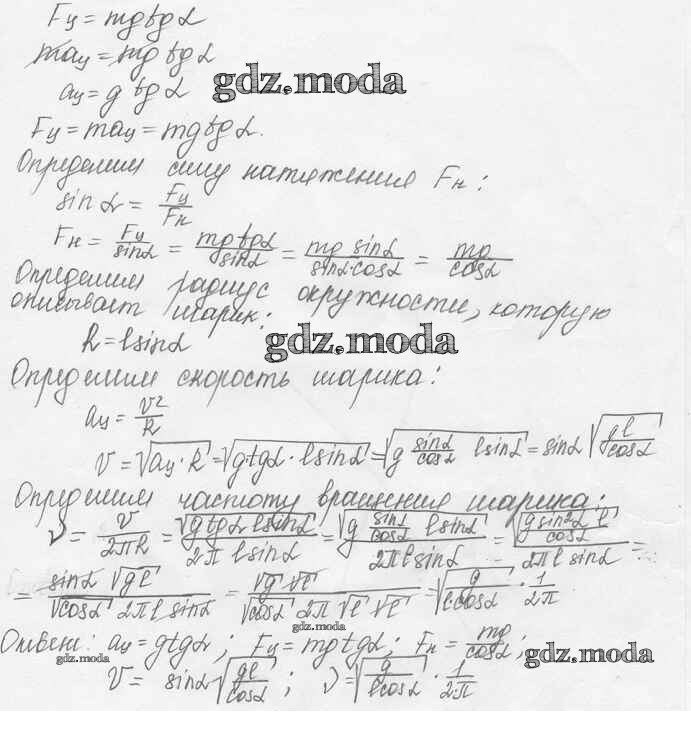 Fц = mg tg α
maц = mg tg α
aц = g tg α
gdz.moda
Fц = maц = mg tg α.
Определим силу натяжения Fн:
sin α = Fц/Fн
Fн = Fц/sin α = mg tg α/sin α = mg sin α/sin α·cos α = mg/cos α
Определим радиус окружности, которую
описывает шарик:
R = l sin α
gdz.moda
Определим скорость шарика:
aц = v²/R
v = √(aц·R) = √(g tg α · l sin α) = √(g sin α/cos α l sin α) = sin α √(gl/cos α)
Определим частоту вращения шарика:
ν = v/2πR = √(g tg α l sin α)/2π l sin α = √(g sin α/cos α l sin α)/2π l sin α = √(g sin² α l/cos α)/2π l sin α =
= sin α √(gl)/√(cos α) 2π l sin α = √g √l/√(cos α) 2π √l √l = √(g/l cos α) · 1/2π
gdz.moda
Ответ: aц = g tg α; Fц = mg tg α; Fн = mg/cos α;
gdz.moda
gdz.moda
v = sin α √(gl/cos α); ν = √(g/l cos α) · 1/2π